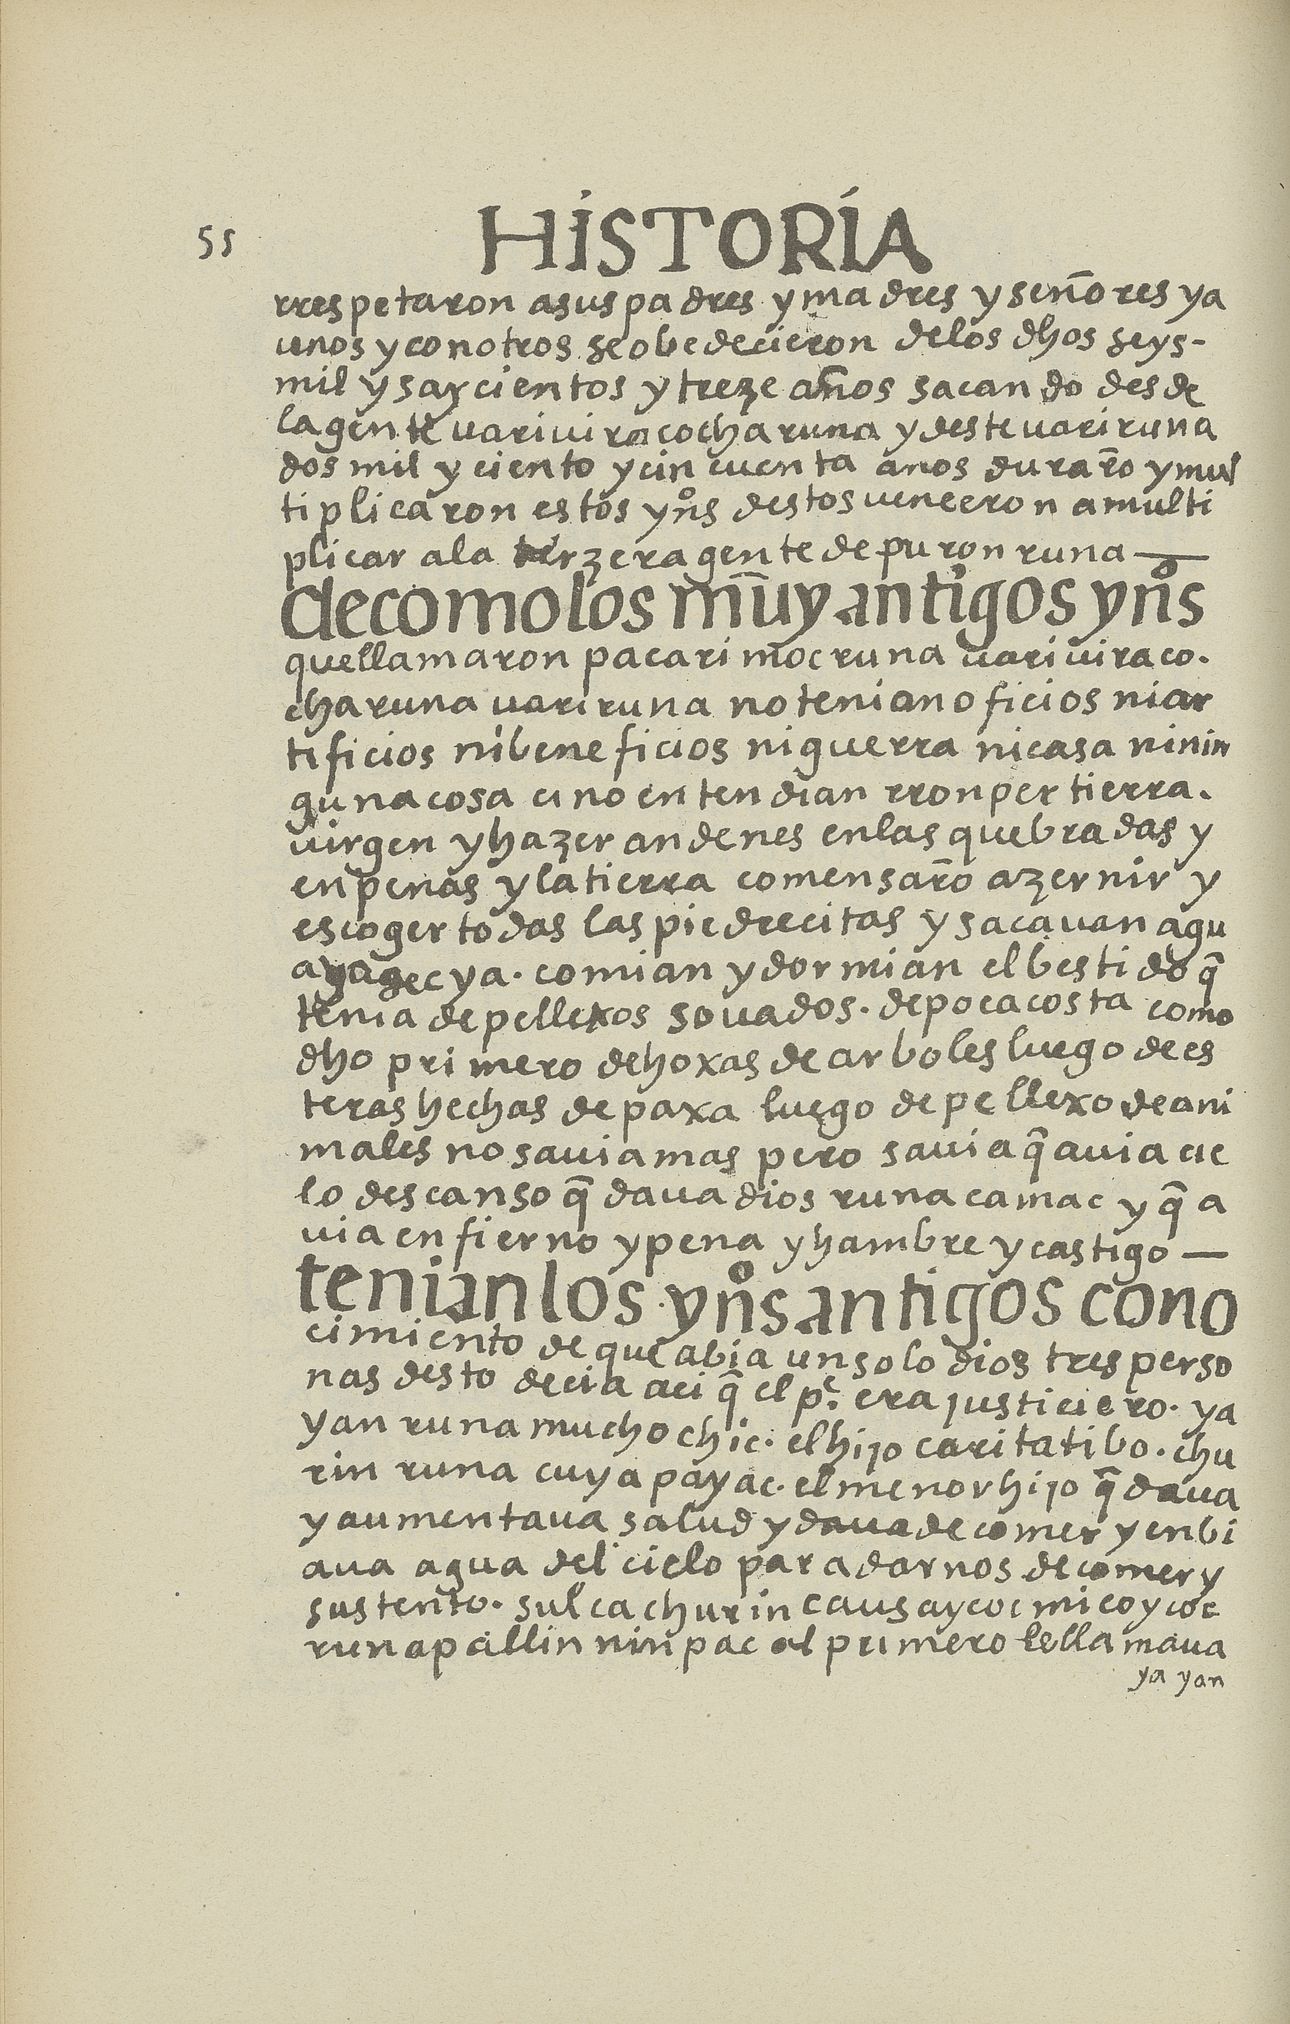 55
HISTORÍA
rrespetaron asuspadres ymadres yseñores ya
unos yconotros seobedecieron delos dhos seys-
mil ysaycientos ytreze años sacando desde
lagente variviracocharuna ydestevariruna
dosmil yciento ycincuenta anos durarō ymul
tiplicaron estos yn̊s destosvenceron amulti
plicar ala terzeragente depuronruna —
decomolos mūy antigos yn̊s
quellamaron pacarimocruna variviraco.
charuna variruna notenianoficios niar
tificios nibeneficios niguerra nicasa ninin
gunacosa cinoentendian rronpertierra.
virgen yhazer andenes enlas quebradas y
enpenas ylatierra comensarō azernir y
escoger todas las piedrecitas ysacavan agu
ayagecya. comian ydormian elbestido q̄
tenia depellexos sovados. depocacosta como
dho primero dehoxas dearboles luego dees
teras hechas depaxa luego depellexo deani
males nosaviamas pero savia q̄avia cie
lo descanso q̄ dava dios runacamac y q̄ a
via enfierno ypena yhambre ycastigo —
tenianlos yn̊s antigos cono
cimiento de queabia unsolo dios tres perso
nas desto decia aci q̄ el pe. era justiciero. ya
yan runamuchochic. elhijo caritatibo. chu
rin runa cuyapayac. elmenorhijo q̄dava
yaumentava salud ydavadecomer yenbi
ava agua del cielo paradarnos decomer y
sustento. sulcachurin causaycoc micoycoc
runapallinninpac al primero lellamava
yayan